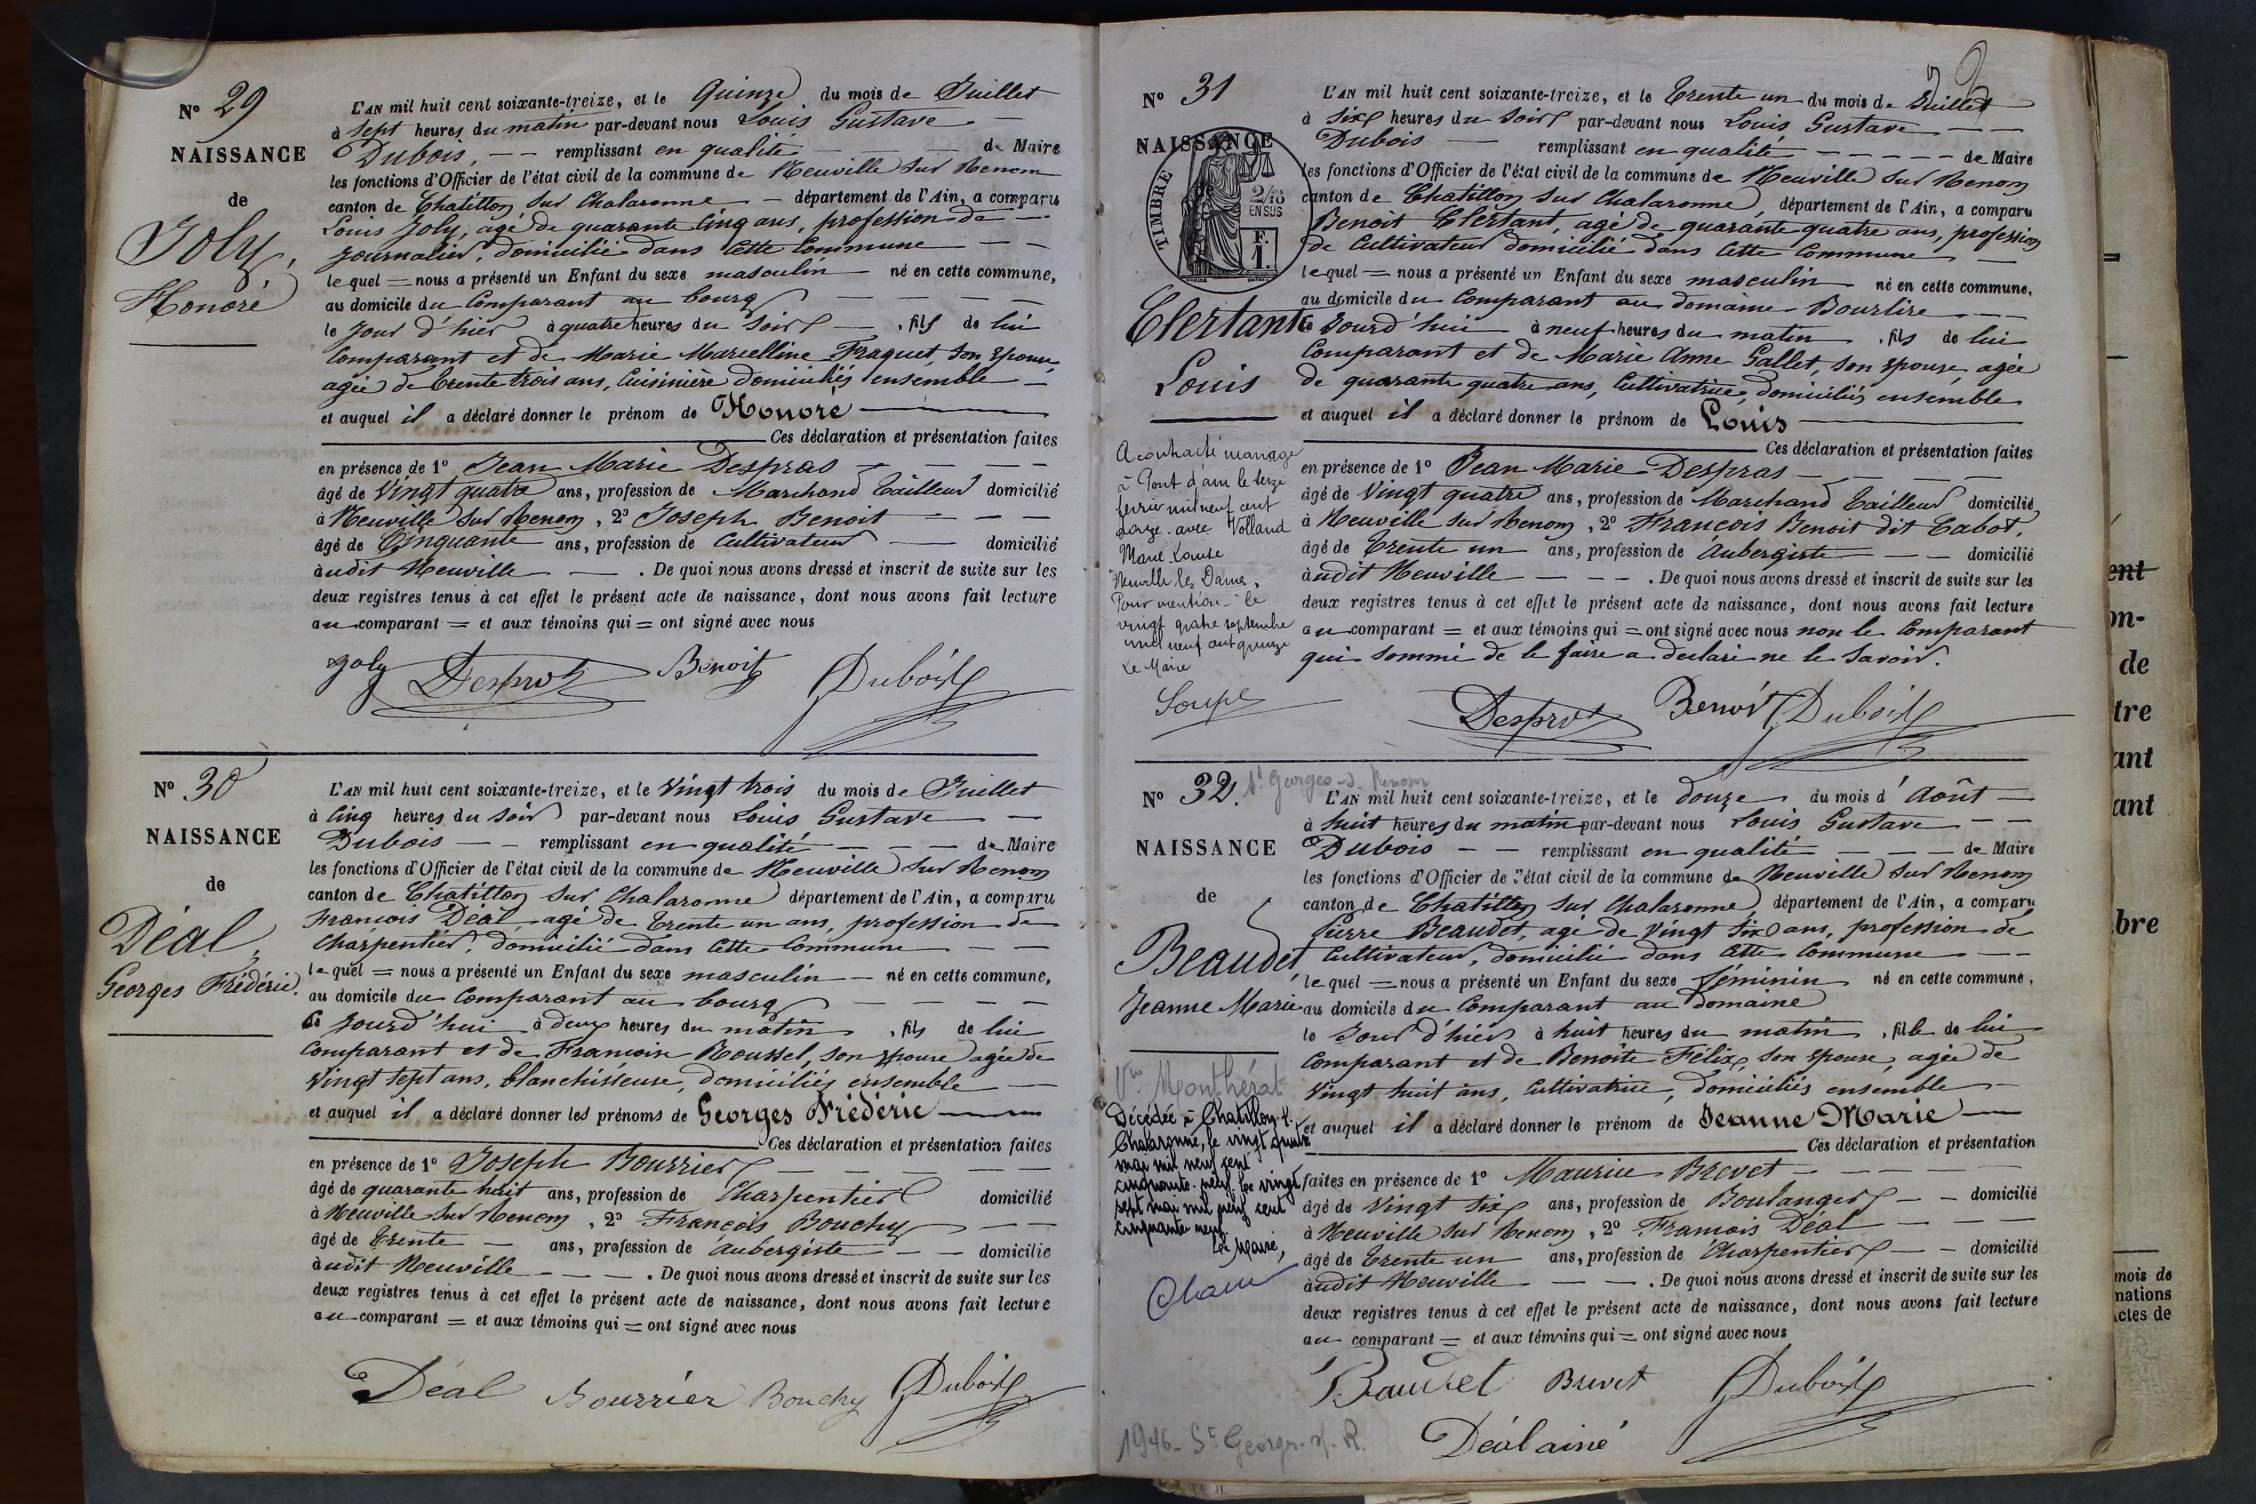 Nº 29
NAISSANCE
de
Joly,
Honoré
L'AN mil huit cent soixante-treize, et le Quinze du mois de Juillet
à sept heures du matin par-devant nous Louis Gustave
Dubois, remplissant en qualité de Maire
les fonctions d'Officier de l'état civil de la commune de Neuville sur Renom
canton de Chatillon sur Chalaronne département de l'Ain, a comparu
Louis Joly, agé de quarante cinq ans, profession de
journalier, domicilié dans cette commune
lequel = nous a présenté un Enfant du sexe masculin né en cette commune,
au domicile du comparant au bourg
le jour d'hier à quatre heures du soir, fils de lui
comparant et de Marie Marcelline Fraquet, son épouse,
agée de trente trois ans, cuisinière domiciliés ensemble
et auquel il a déclaré donner le prénom de Honoré
Ces déclaration et présentation faites
en présence de 1º Jean Marie Despras
âgé de Vingt quatre ans, profession de Marchand Tailleur domicilié
à Neuville sur Renom, 2º Joseph Benoit
âgé de Cinquante ans, profession de cultivateur domicilié
audit Neuville. De quoi nous avons dressé et inscrit de suite sur les
deux registres tenus à cet effet le présent acte de naissance, dont nous avons fait lecture
au comparant = et aux témoins qui = ont signé avec nous
Joly Despras Benoit Dubois
Nº 30
NAISSANCE
de
Déal,
Georges Frédéric.
L'AN mil huit cent soixante-treize, et le Vingt trois du mois de Juillet
à cinq heures du soir par-devant nous Louis Gustave
Dubois remplissant en qualité de Maire
les fonctions d'Officier de l'état civil de la commune de Neuville sur Renom
canton de Chatillon sur Chalaronne département de l'Ain, a comparu
François Déal agé de trente un ans, profession de
charpentier, domicilié dans cette commune
lequel = nous a présenté un Enfant du sexe masculin né en cette commune,
au domicile du comparant au bourg
ce jourd'hui à deux heures du matin, fils de lui
comparant et de Françoise Roussel, son épouse agée de
vingt sept ans, blanchisseuse, domiciliés ensemble
et auquel il a déclaré donner les prénoms de Georges Frédéric
Ces déclaration et présentation faites
en présence de 1º Joseph Bourrier
âgé de quarante huit ans, profession de Charpentier domicilié
à Neuville sur Renom, 2º François Bouchy
âgé de trente ans, profession de aubergiste domicilié
audit Neuville. De quoi nous avons dressé et inscrit de suite sur les
deux registres tenus à cet effet le présent acte de naissance, dont nous avons fait lecture
au comparant = et aux témoins qui = ont signé avec nous
Déal Bourrier Bouchy Dubois
Nº 31
NAISSANCE
de
TIMBRE
2/10
EN SUS
F.
1.
Clertant
Louis
A contracté mariage
à Pont d'ain le seize
février mil neuf cent
avec Volland
Marie Louise
Neuville les Dames.
Pour mention le
vingt quatre septembre
mil neuf cent quinze
Le Maire
L'AN mil huit cent soixante-treize, et le Trente un du mois de Juillet
à six heures du soir par-devant nous Louis Gustave
Dubois remplissant en qualité de Maire
les fonctions d'Officier de l'état civil de la commune de Neuville sur Renom
canton de Chatillon sur Chalaronne, département de l'Ain, a comparu
Benoit Clertant, agé de quarante quatre ans, profession
de cultivateur domicilié dans cette commune
lequel = nous a présenté un Enfant du sexe masculin né en cette commune,
au domicile du comparant au domaine Bourlire
ce jourd'hui à neuf heures du matin, fils de lui
comparant et de Marie Anne Gallet, son épouse agée
de quarante quatre ans, cultivatrice, domiciliés ensemble
et auquel il a déclaré donner le prénom de Louis
Ces déclaration et présentation faites
en présence de 1º Jean Marie Despras
âgé de Vingt quatre ans, profession de Marchand Tailleur domicilié
à Neuville sur Renom, 2º François Benoit dit Cabot,
âgé de trente un ans, profession de Aubergiste domicilié
audit Neuville. De quoi nous avons dressé et inscrit de suite sur les
deux registres tenus à cet effet le présent acte de naissance, dont nous avons fait lecture
au comparant = et aux témoins qui = ont signé avec nous non le comparant
qui sommé de le faire a déclaré ne le savoir.
Despras Benoit Dubois
Nº 32. St Georges-s. Renom
NAISSANCE
de
Beaudet
Jeanne Marie
Vve Monthérat
Décédée à Chatillon-s.
Chalaronne, le vingt quatre
mai mil neuf cent
cinquante-neuf. Le vingt
sept mai mil neuf cent
cinquante neuf
Le Maire,
L'AN mil huit cent soixante-treize, et le douze du mois d'Août
à huit heures du matin par-devant nous Louis Gustave
Dubois remplissant en qualité de Maire
les fonctions d'Officier de l'état civil de la commune de Neuville sur Renom
canton de Chatillon sur Chalaronne, département de l'Ain, a comparu
Pierre Beaudet, agé de vingt six ans, profession de
cultivateur, domicilié dans cette commune
lequel = nous a présenté un Enfant du sexe féminin né en cette commune,
au domicile du comparant au domaine
le jour d'hier à huit heures du matin, fille de lui
comparant et de Benoite Félix, son épouse, agée de
vingt huit ans, cultivatrice, domiciliés ensemble
et auquel il a déclaré donner le prénom de Jeanne Marie
Ces déclaration et présentation
faites en présence de 1º Maurice Brevet
âgé de vingt six ans, profession de Boulanger domicilié
à Neuville sur Renom, 2º François Déal
âgé de Trente un ans, profession de Charpentier domicilié
audit Neuville. De quoi nous avons dressé et inscrit de suite sur les
deux registres tenus à cet effet le présent acte de naissance, dont nous avons fait lecture
au comparant = et aux témoins qui = ont signé avec nous
Baudet Brevet Dubois
Déal ainé
1946 - St Georges-s/-R.
ent
on-
de
tre
ant
ant
bre
mois de
nations
Actes de